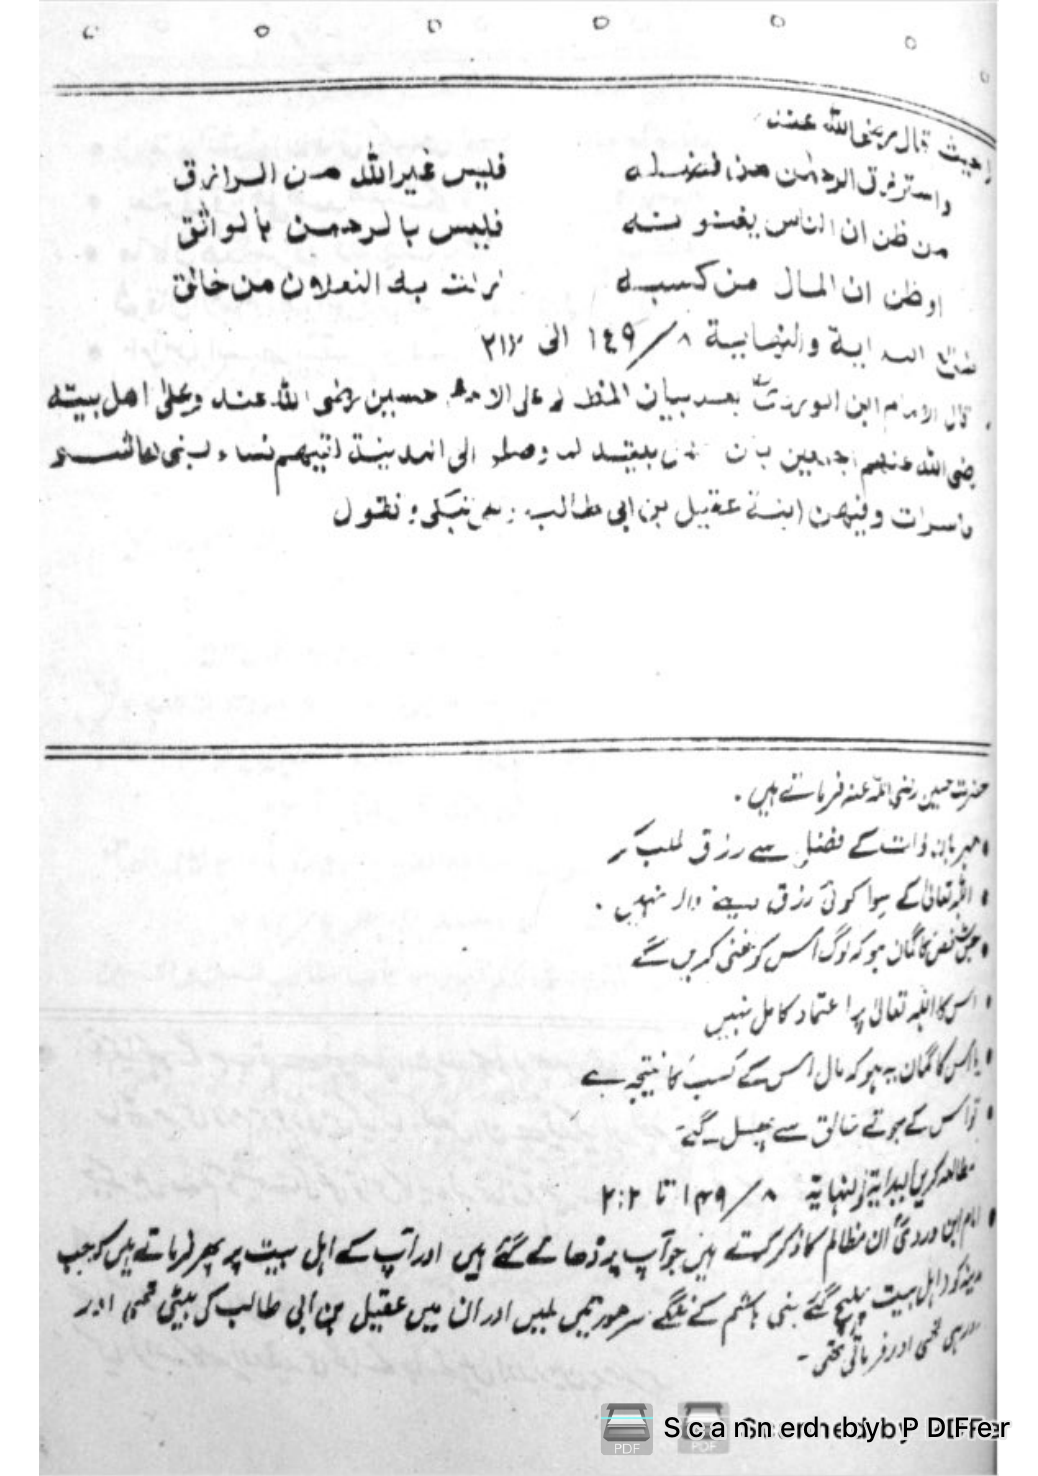 حيث قال رضي الله عنه
واسترزق الرحمن من فضله فليس غير الله من الرازق
من ظن ان الناس يغنونه فليس بالرحمن بالواثق
او ظن ان المال من كسبه زلت به النعلان من خالق
البداية والنهاية ٨/١٤٩ الى
قال الامام ابن الوردي بعد بيان على الامام حسين رضى الله عنه وعلى اهل بيته
رضى الله عنهم اجمعين بان وصلو الى المدينة نساء بنى هاشم
حاسرات وفيهن ابنة عقيل بن ابى طالب تبكى و تقول
حضرت حسین رضی اللہ عنہ فرماتے ہیں ۔
• مہربان ذات کے فضل سے رزق طلب کر
• اللہ تعالیٰ کے سوا کوئی رزق دینے والا نہیں ۔
• جس شخص کا گمان ہو کہ لوگ اس کو غنی کریں گے
• اس کا اللہ تعالیٰ پر اعتماد کامل نہیں
• یا اس کا گمان یہ ہو کہ مال اس کے کسب کا نتیجہ ہے
• تو اس کے جوتے خالق سے پھسل گئے ۔
مطالعہ کریں البدایۃ والنہایۃ ۸/۱۴۹ تا
• امام ابن وردیؒ ان مظالم کا ذکر کرتے ہیں جو آپ پر ڈھائے گئے ہیں اور آپ کے اہل بیت پر پھر فرماتے ہیں کہ جب
مدینہ کو اہل بیت گئے بنی ہاشم کے ننگے سر عورتیں ملیں اور ان میں عقیل بن ابی طالب کی بیٹی تھی اور
رو رہی تھی اور فرماتی تھی ۔
PDF PDF